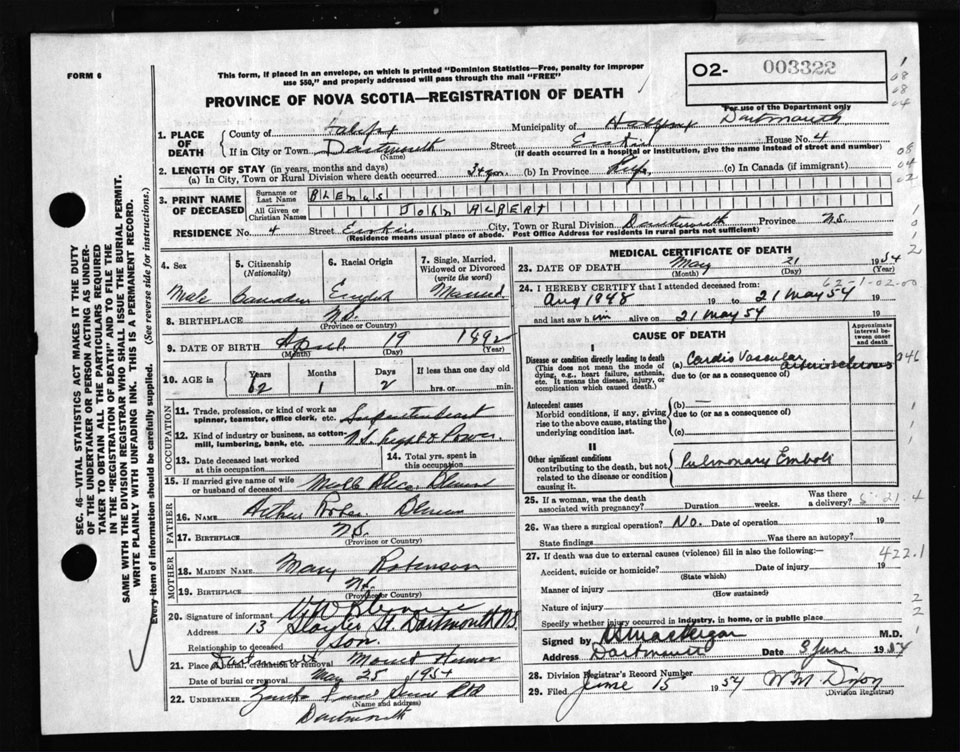 FORM 6
This form, if placed in an envelope, on which is printed "Dominion Statistics—Free, penalty for improper
use $50," and properly addressed will pass through the mail "FREE"
O2- 003322
For use of the Department only
PROVINCE OF NOVA SCOTIA—REGISTRATION OF DEATH
1. PLACE OF DEATH
County of Halifax Municipality of Halifax Dartmouth
If in City or Town Dartmouth Street House No. 4
(Name) (If death occurred in a hospital or institution, give the name instead of street and number)
2. LENGTH OF STAY (in years, months and days)
(a) In City, Town or Rural Division where death occurred 34 yrs. (b) In Province Life (c) In Canada (if immigrant)
3. PRINT NAME OF DECEASED
Surname or Last Name BLENUS
All Given or Christian Names JOHN ALBERT
RESIDENCE No. 4 Street City, Town or Rural Division Dartmouth Province N.S.
(Residence means usual place of abode. Post Office Address for residents in rural parts not sufficient)
4. Sex Male
5. Citizenship (Nationality) Canadian
6. Racial Origin English
7. Single, Married, Widowed or Divorced (write the word) Married
8. BIRTHPLACE N.S.
(Province or Country)
9. DATE OF BIRTH April 19 1892
(Month) (Day) (Year)
10. AGE in Years 62 Months 1 Days 2 If less than one day old hrs. or min.
OCCUPATION
11. Trade, profession, or kind of work as spinner, teamster, office clerk, etc. Superintendent
12. Kind of industry or business, as cotton-mill, lumbering, bank, etc. N.S. Light & Power
13. Date deceased last worked at this occupation
14. Total yrs. spent in this occupation
15. If married give name of wife or husband of deceased Blenus
FATHER
16. Name Arthur Blenus
17. Birthplace N.S.
(Province or Country)
MOTHER
18. MAIDEN NAME Mary Robinson
19. BIRTHPLACE N.S.
(Province or Country)
20. Signature of informant
Address 13 Slayter St. Dartmouth N.S.
Relationship to deceased Son
21. Place of burial, cremation or removal Dartmouth Mount Hermon
Date of burial or removal May 25 1954
22. UNDERTAKER
(Name and address)
Dartmouth
MEDICAL CERTIFICATE OF DEATH
23. DATE OF DEATH May 21 1954
(Month) (Day) (Year)
62-1-02-00
24. I HEREBY CERTIFY that I attended deceased from:
Aug 1948 19 to 21 May 54 19
and last saw him alive on 21 May 54 19
CAUSE OF DEATH
Approximate interval between onset and death
I
Disease or condition directly leading to death
(This does not mean the mode of dying, e.g., heart failure, asthenia, etc. It means the disease, injury, or complication which caused death.)
(a) Cardio Vascular arteriosclerosis
due to (or as a consequence of)
Antecedent causes
Morbid conditions, if any, giving rise to the above cause, stating the underlying condition last.
(b) —
due to (or as a consequence of)
(c)
II
Other significant conditions
contributing to the death, but not related to the disease or condition causing it.
Pulmonary Emboli
25. If a woman, was the death associated with pregnancy? Duration weeks Was there a delivery?
26. Was there surgical operation? No. Date of operation 19
State findings Was there an autopsy?
27. If death was due to external causes (violence) fill in also the following:—
422.1
Accident, suicide or homicide? Date of injury 19
(State which)
Manner of injury
(How sustained)
Nature of injury
Specify whether injury occurred in industry, in home, or in public place
Signed by M.D.
Address Dartmouth Date 3 June 1954
28. Division Registrar's Record Number
29. Filed June 15 1954 W M Dixon
(Division Registrar)
SEC. 46—VITAL STATISTICS ACT MAKES IT THE DUTY
OF THE UNDERTAKER OR PERSON ACTING AS UNDER-
TAKER TO OBTAIN ALL THE PARTICULARS REQUIRED
IN THE "REGISTRATION OF DEATH" AND TO FILE THE
SAME WITH THE DIVISION REGISTRAR WHO SHALL ISSUE THE BURIAL PERMIT.
WRITE PLAINLY WITH UNFADING INK. THIS IS A PERMANENT RECORD.
Every item of information should be carefully supplied. (See reverse side for instructions.)